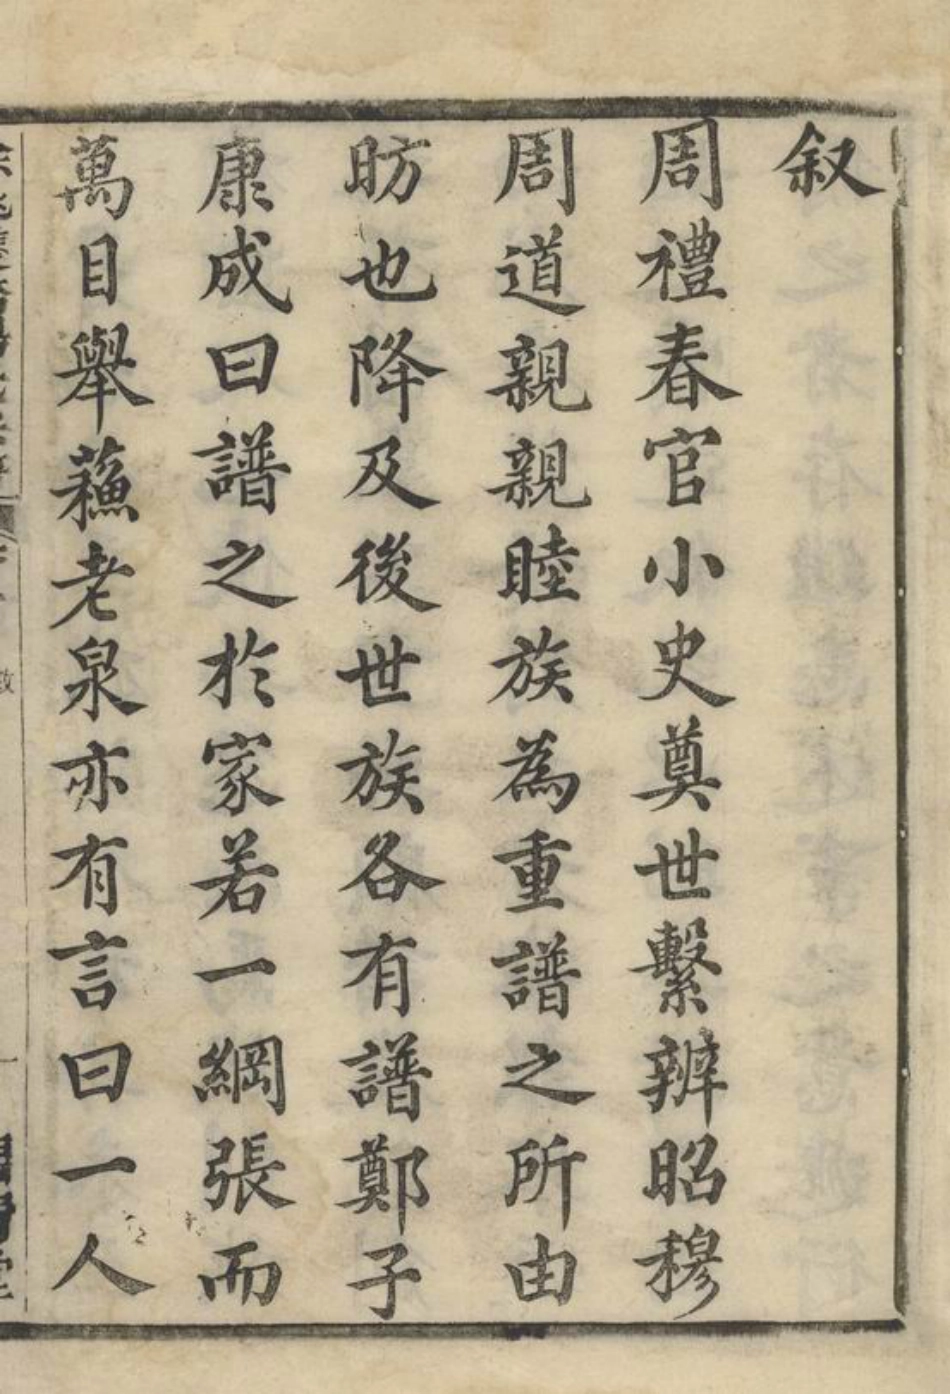 叙
周禮春官小史奠世繫辨昭穆
周道親親睦族為重譜之所由
昉也降及後世族各有譜鄭子
康成曰譜之於家若一綱張而
萬目舉蘓老泉亦有言曰一人